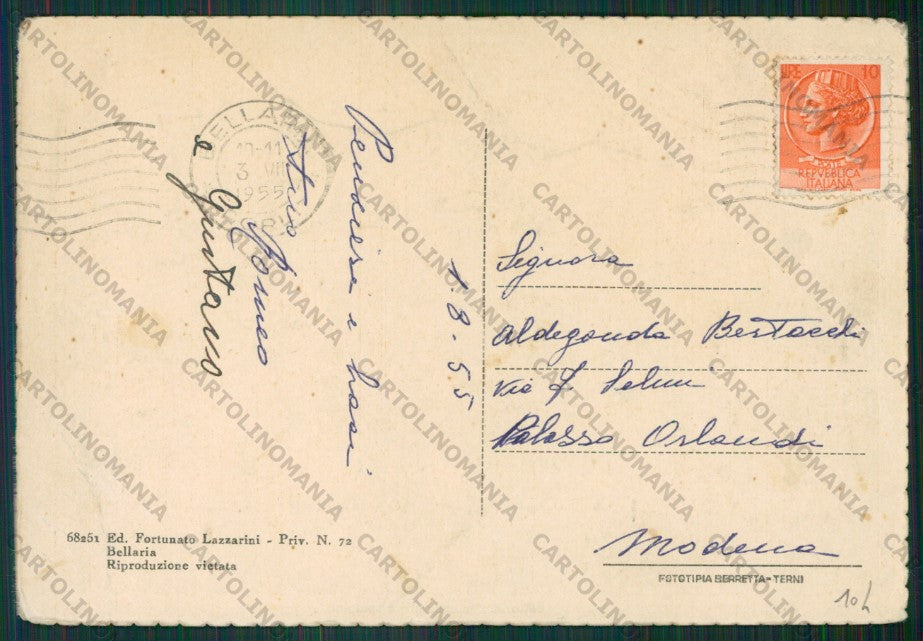 Pensiero e baci
tuo Romeo
e Gustavo
1 8 - 55
BELLARIA
10-11
3 VIII
1955
LIRE 10
POSTE
REPVBBLICA
ITALIANA
Signora
Aldegonda Bertacchi
Via F. Selmi
Palazzo Orlandi
Modena
FOTOTIPIA BERRETTA - TERNI
68251 Ed. Fortunato Lazzarini - Priv. N. 72
Bellaria
Riproduzione vietata
10L
CARTOLINOMANIA